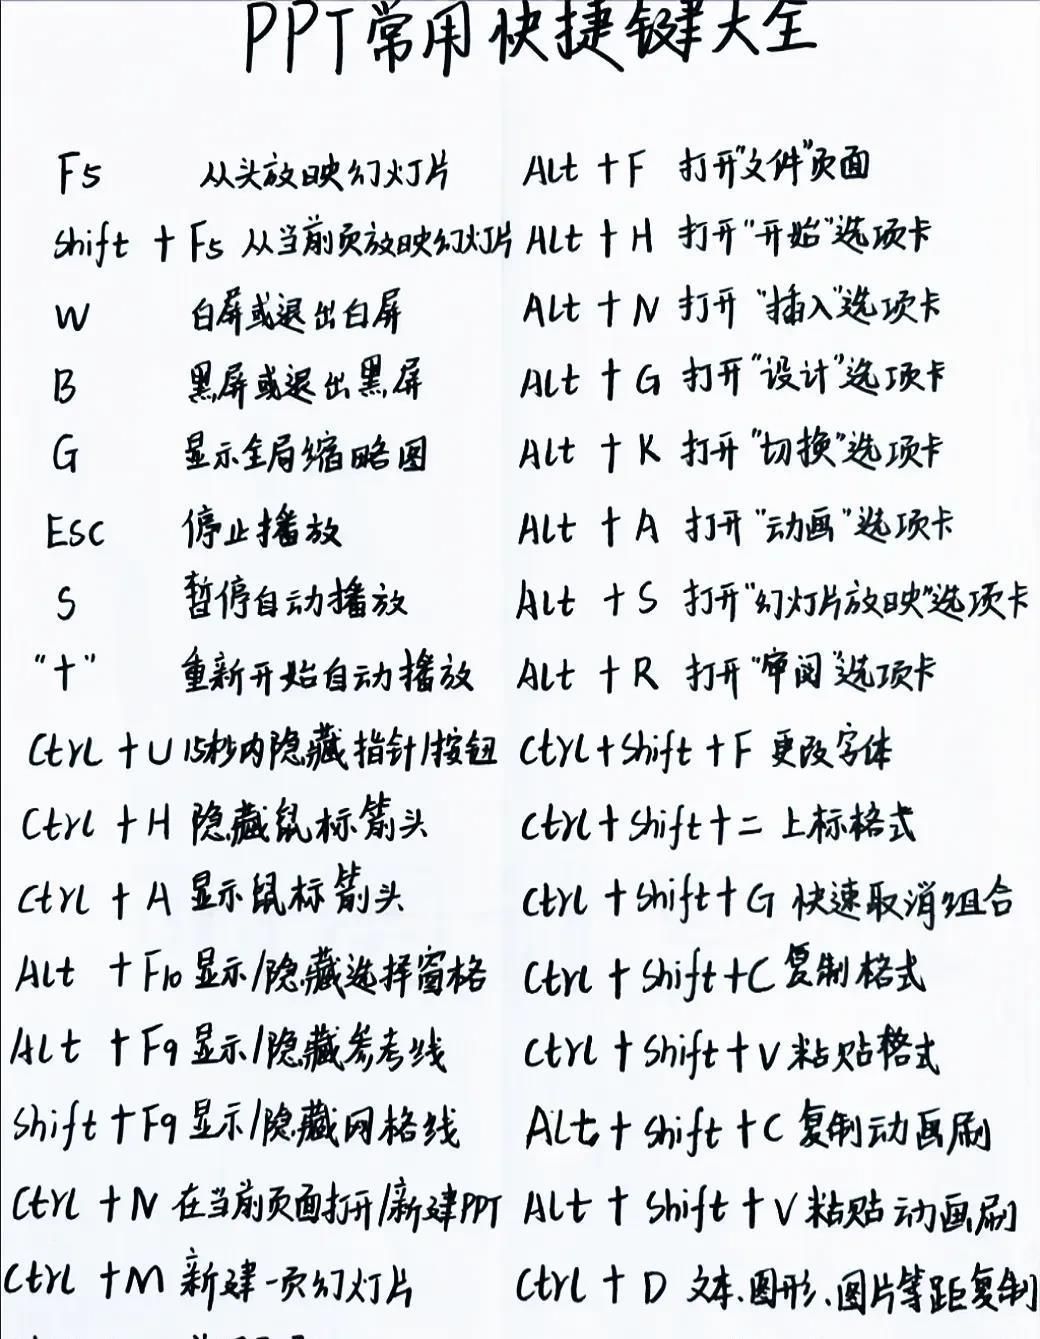 PPT常用快捷键大全
F5 从头放映幻灯片
Shift + F5 从当前页放映幻灯片
W 白屏或退出白屏
B 黑屏或退出黑屏
G 显示全局缩略图
ESC 停止播放
S 暂停自动播放
"+" 重新开始自动播放
Ctrl + U 15秒内隐藏指针/按钮
Ctrl + H 隐藏鼠标箭头
Ctrl + A 显示鼠标箭头
Alt + F10 显示/隐藏选择窗格
Alt + F9 显示/隐藏参考线
Shift + F9 显示/隐藏网格线
Ctrl + N 在当前页面打开/新建PPT
Ctrl + M 新建一页幻灯片
Alt + F 打开"文件"页面
Alt + H 打开"开始"选项卡
Alt + N 打开"插入"选项卡
Alt + G 打开"设计"选项卡
Alt + K 打开"切换"选项卡
Alt + A 打开"动画"选项卡
Alt + S 打开"幻灯片放映"选项卡
Alt + R 打开"审阅"选项卡
Ctrl + Shift + F 更改字体
Ctrl + Shift + = 上标格式
Ctrl + Shift + G 快速取消组合
Ctrl + Shift + C 复制格式
Ctrl + Shift + V 粘贴格式
Alt + Shift + C 复制动画刷
Alt + Shift + V 粘贴动画刷
Ctrl + D 文本、图形、图片等距复制